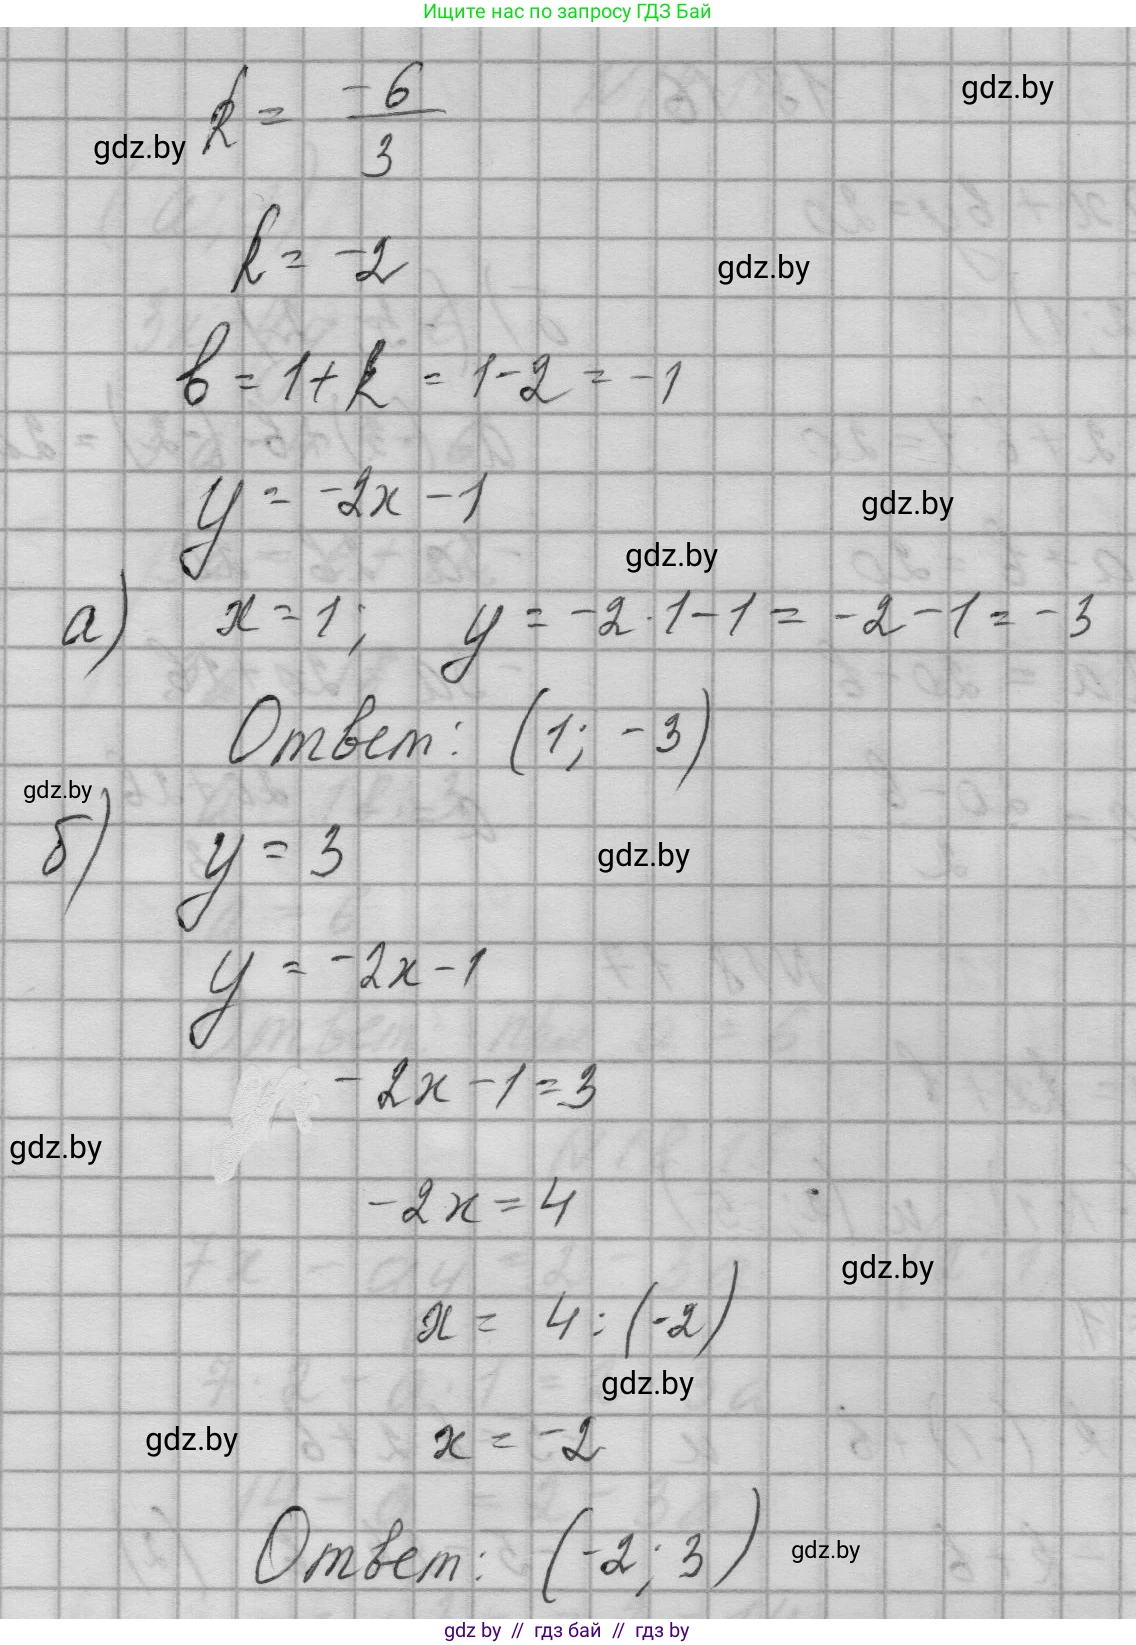 Ищите нас по запросу ГДЗ Бай
k = -6/3
gdz.by
gdz.by
k = -2
gdz.by
b = 1 + k = 1 - 2 = -1
y = -2x - 1
gdz.by
gdz.by
а) x = 1; y = -2 · 1 - 1 = -2 - 1 = -3
Ответ: (1; -3)
gdz.by
б) y = 3
gdz.by
y = -2x - 1
-2x - 1 = 3
gdz.by
-2x = 4
gdz.by
x = 4 : (-2)
gdz.by
gdz.by
x = -2
Ответ: (-2; 3)
gdz.by
gdz by // гдз бай // гдз by